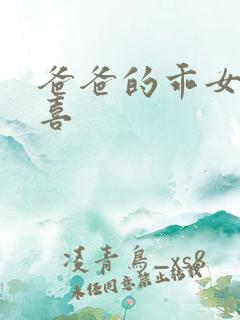 爸爸的乖女
喜
凌青鸟_xs8
未经同意禁止转载